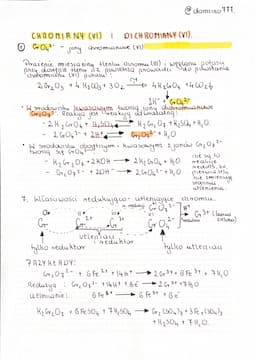 @domisko777
CHROMIANY (VI) I DICHROMIANY (VI).
CrO₄²⁻ - jony chromianowe (VI)
Prażenie mieszaniny tlenku chromu (III) i węglanu potasu
przy dostępie tlenu z powietrza prowadzi do powstania
chromianu (VI) potasu:
2Cr₂O₃ + 4K₂CO₃ + 3O₂ → 4K₂CrO₄ + 4CO₂↑
2H⁺ + CrO₄²⁻
W środowisku kwasowym tworzą jony dichromianowe
Cr₂O₇²⁻. Reakcja jest reakcją odwracalną:
- 2K₂CrO₄ + H₂SO₄ → K₂Cr₂O₇ + K₂SO₄ + H₂O
- 2CrO₄²⁻ + 2H⁺ → Cr₂O₇²⁻ + H₂O
W środowisku z jonów Cr₂O₇²⁻
tworzą się CrO₄²⁻
- K₂Cr₂O₇ + 2KOH → 2K₂CrO₄ + H₂O
- Cr₂O₇²⁻ + 2OH⁻ → 2CrO₄²⁻ + H₂O
7. Właściwości redukująco-utleniające chromu.
Cr₂O₇²⁻
Cr³⁺
CrO₄²⁻
utleniacz i reduktor
tylko reduktor tylko utleniacz
PRZYKŁADY:
Cr₂O₇²⁻ + 6Fe²⁺ + 14H⁺ → 2Cr³⁺ + 6Fe³⁺ + 7H₂O
Redukcja: Cr₂O₇²⁻ + 14H⁺ + 6e⁻ → 2Cr³⁺ + 7H₂O
utlenianie: 6Fe²⁺ → 6Fe³⁺ + 6e⁻
K₂Cr₂O₇ + 6FeSO₄ + 7H₂SO₄ → Cr₂(SO₄)₃ + 3Fe₂(SO₄)₃
+ K₂SO₄ + 7H₂O.